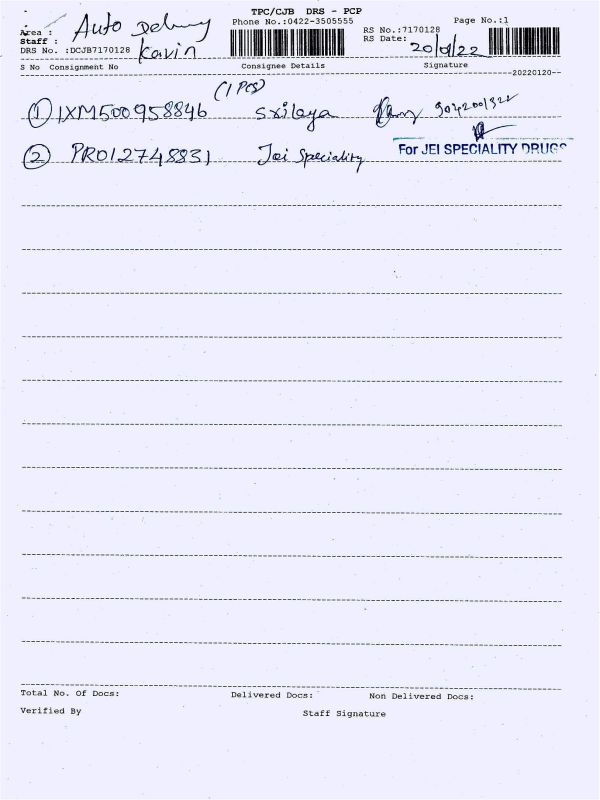 TPC/CJB DRS - PCP
Area : Auto Delivery
Phone No.:0422-3505555
Page No.:1
Staff : Kavin
RS No.:7170128
DRS No. :DCJB7170128
RS Date: 20/1/22
S No Consignment No Consignee Details Signature
--20220120--
(1 PCS)
1 IXM500958846 Srilaya 9042001322
2 PRO12748831 Jei Speciality
For JEI SPECIALITY DRUGS
Total No. Of Docs: Delivered Docs: Non Delivered Docs:
Verified By Staff Signature